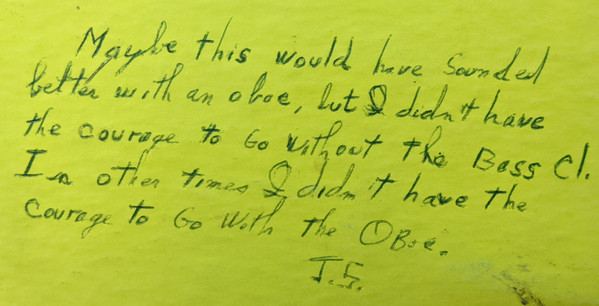 Maybe this would have sounded
better with an oboe, but I didn't have
the courage to Go without the Bass Cl.
In other times I didn't have the
courage to Go With the Oboe.
J.S.